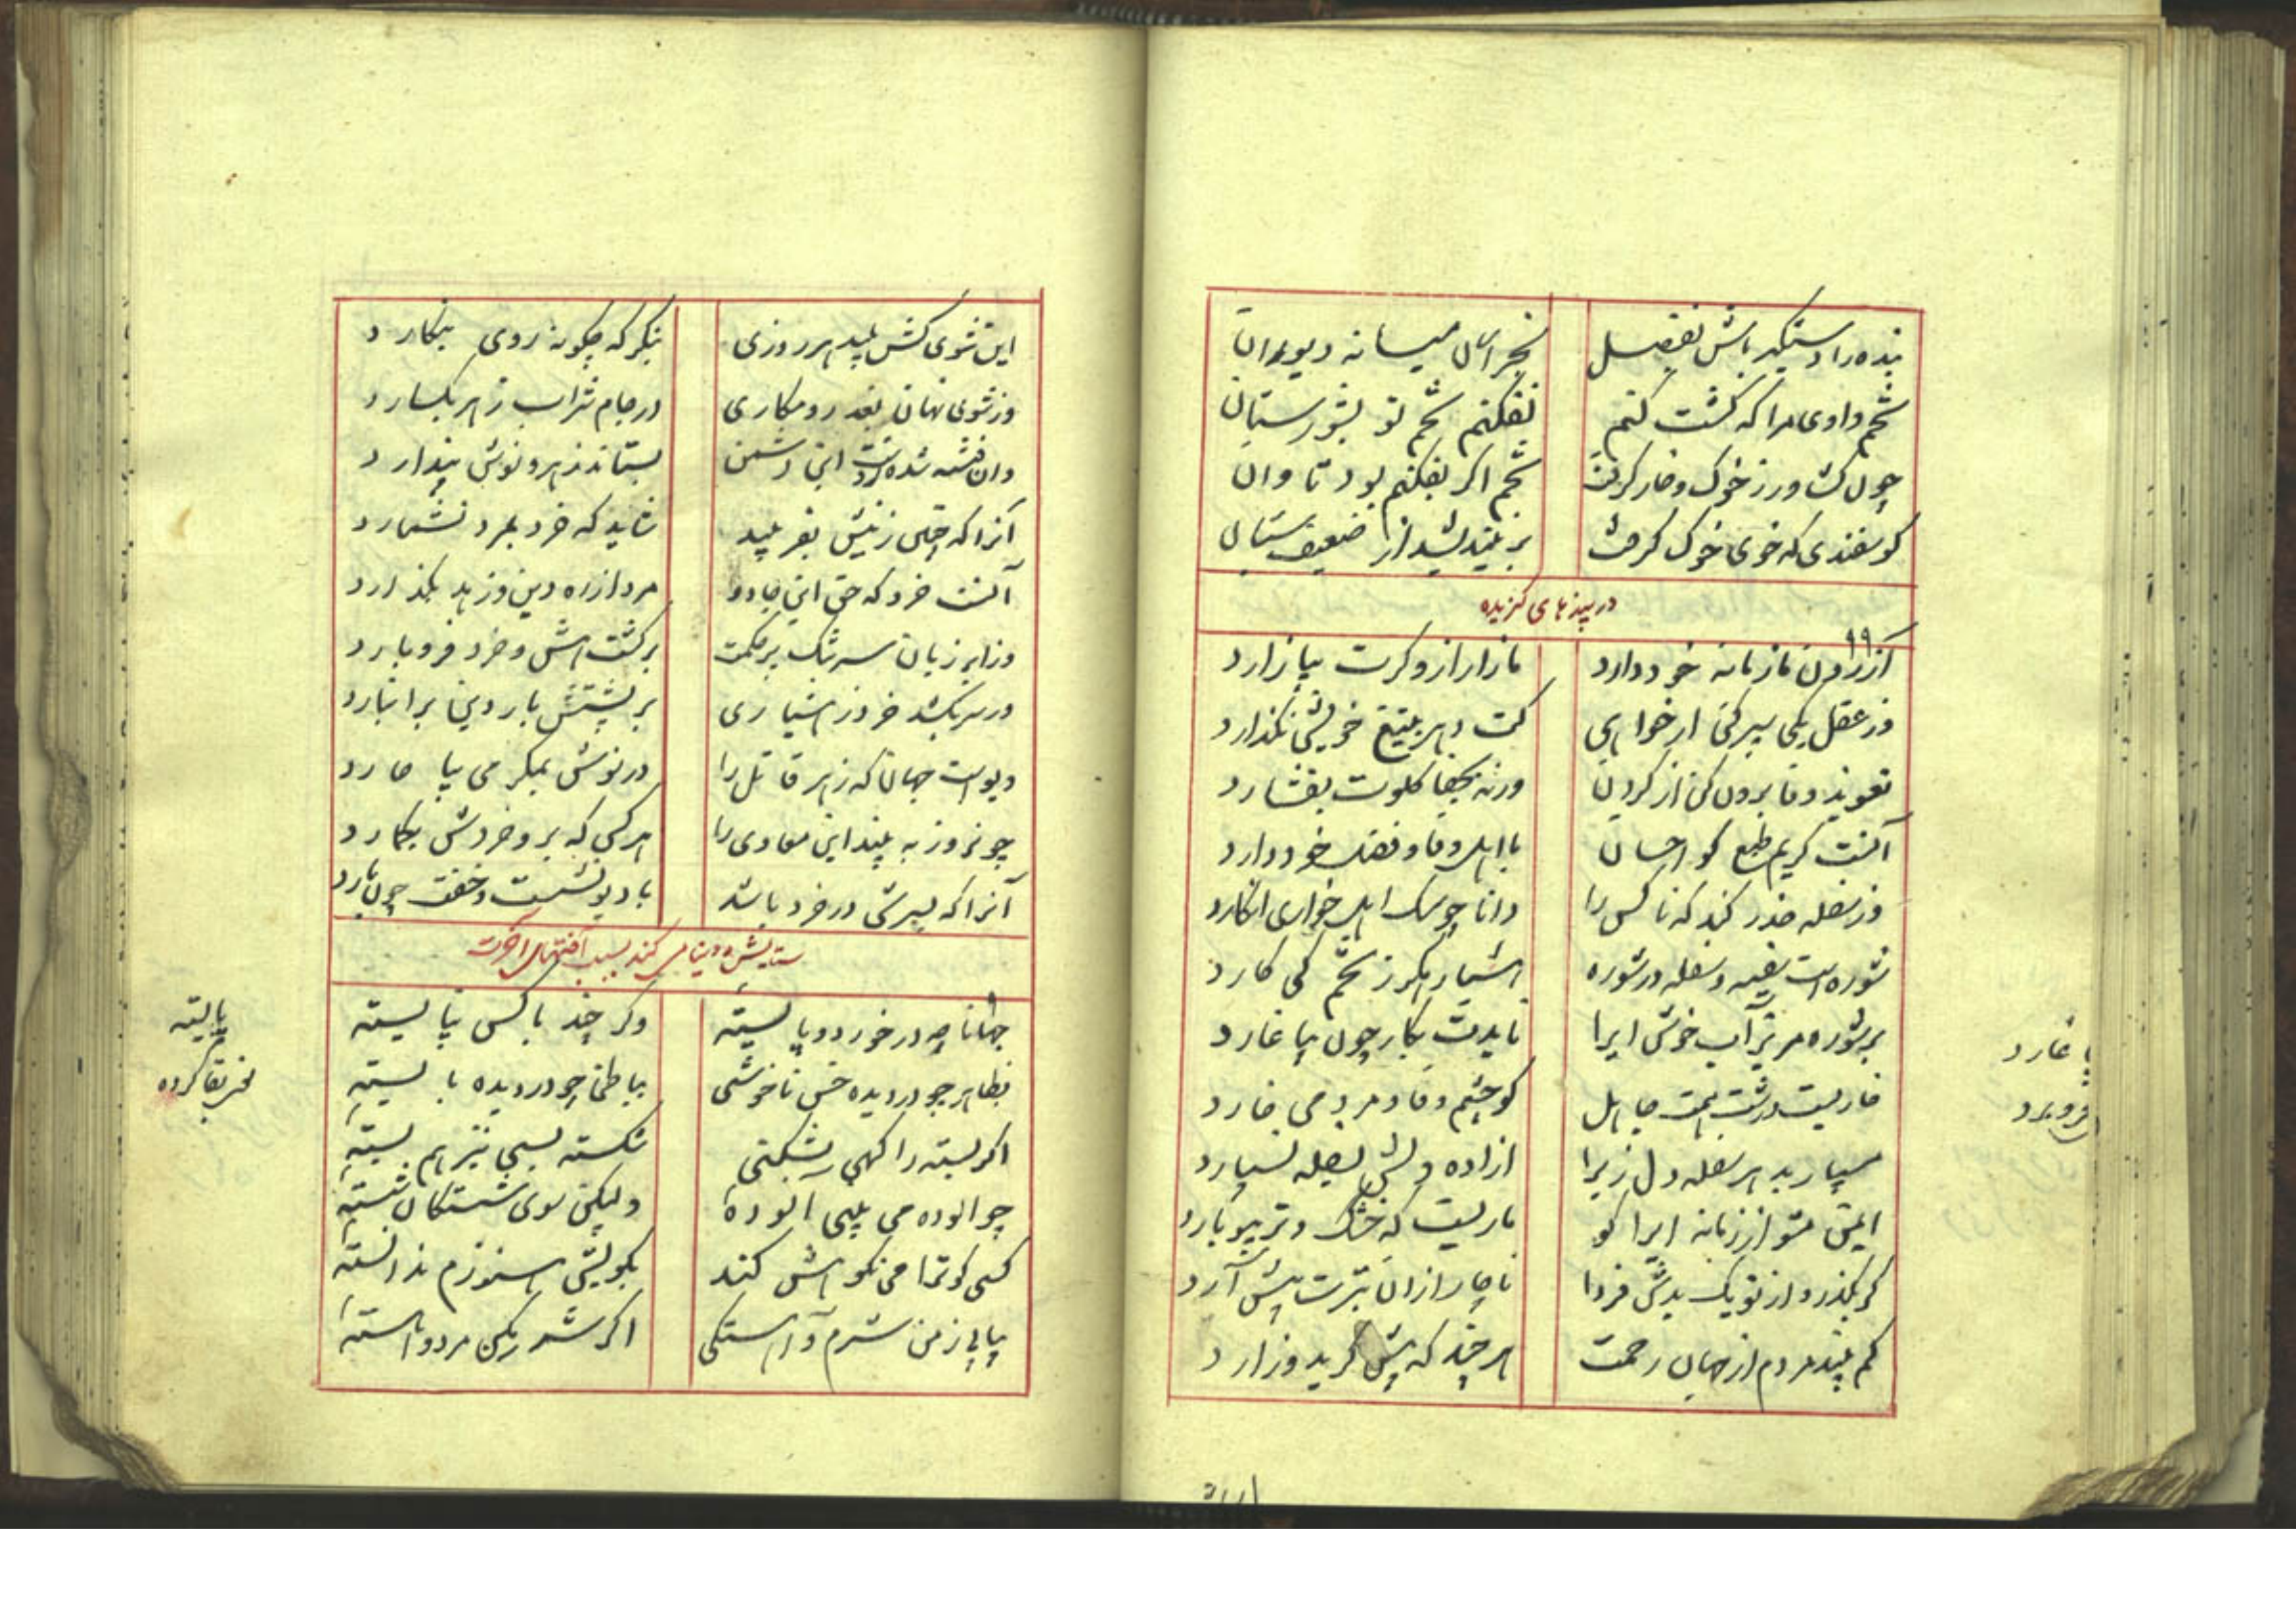 بنده را دستگیر باش بفضل    بخراسان میسانه دیوان
تخم دادی مرا که کشت کنم    نفکنم تخم تو بشورستان
چون کشاورز خوک و خار گرفت    تخم اگر بفکنم بود تاوان
کوسفندی که خوی خوک گرفت    بر
در پیزهای گزیده
۹۹
مازار ازو گرت بیازارد
وز عقل یکی سپر کن ار خواهی    کت دهر بتیغ خویش نگذارد
تعویذ وفا برون کن از گردن    ورنه بجفا گلوت بفشارد
آنست کریم طبع کو احسان    با اهل وفا و فضل خود دارد
وز سفله حذر کند که ناکس را    دانا چو سگ اهل خواری انگارد
شوره است سفیه و سفله در شوره    هشیار هگرز تخم کی کارد
بر شوره مریز آب خوش ایرا    نایدت بکار چون بیاغارد
خاریست درشت همت جاهل    کو چشم وفا و مردمی خارد
مسپار بدهر سفله دل زیرا    ازاده دلش بسفله نسپارد
ایمن مشو از زمانه ایرا کو    ماریست که خشک و تر بیوبارد
گر بگذرد از تو یک بدش فردا    ناچار ازان بترت پیش آرد
کم بیند مردم از جهان رحمت    هر چند که پیش گرید و زارد
یاغارد
فرو برد
این شوی کش پلید هر روزی    بنگر که چگونه روی بنگارد
وز شوی نهان بغدر و مکاری    در جام شراب زهر بگسارد
وان فتنه شده زدست این دشمن    بستاند زهر و نوش پندارد
آنرا که چنین زنیش بفریبد    شاید که خرد بمرد نشمارد
آنست خرد که حق این جادو    مرد از ره دین و زهد بگذارد
وز ابر زبان سرشک بر حکمت    بر کشت هش و خرد فرو بارد
ور سر بکشد خرد ز هشیاری    بر پشتش بار دین بر انبارد
دیوست جهان که زهر قاتل را    در نوش بمکر می بیاچارد
چون روز به بیند این معادی را    هر کس که برو خرد بگمارد
آنرا که بسرش در خرد باشد    با دیو نشست و خفت چون یارد
جهانا چه در خورد و بایسته    وگر چند با کس نپایسته
بظاهر چو در دیده خس ناخوشی    بباطن چو در دیده بایسته
اگر بسته را گهی بشکنی    شکسته بسی نیز هم بسته
چو الوده می بینی الوده    ولیکن سوی شستگان شسته
کسی کو ترا می نکوهش کند    بگویش هنوزم ندانسته
بیابی ز من شرم و آهستگی    اگر شرمگن مرد و آهسته
پایسته